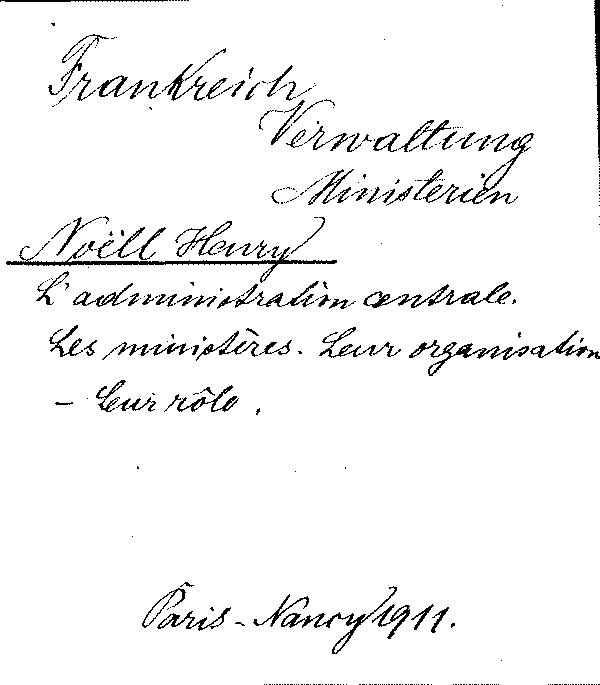 Frankreich
Verwaltung
Ministerien
Noëll Henry
L'administration centrale.
Les ministères. Leur organisation
- Leur rôle.
Paris-Nancy 1911.